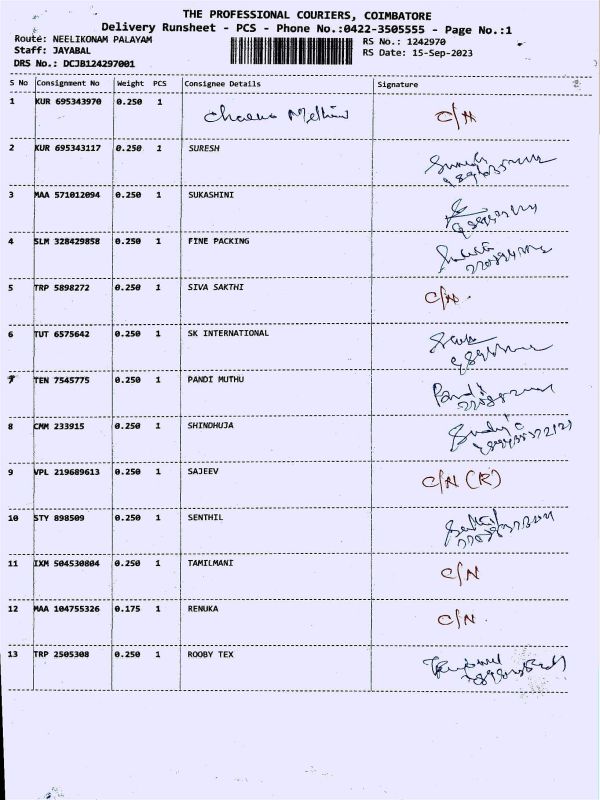 THE PROFESSIONAL COURIERS, COIMBATORE
Delivery Runsheet - PCS - Phone No.:0422-3505555 - Page No.:1
Route: NEELIKONAM PALAYAM
Staff: JAYABAL
DRS No.: DCJB124297001
RS No.: 1242970
RS Date: 15-Sep-2023
S No Consignment No Weight PCS Consignee Details Signature
1 KUR 695343970 0.250 1 C/N
2 KUR 695343117 0.250 1 SURESH
3 MAA 571012094 0.250 1 SUKASHINI
4 SLM 328429858 0.250 1 FINE PACKING
5 TRP 5898272 0.250 1 SIVA SAKTHI C/N.
6 TUT 6575642 0.250 1 SK INTERNATIONAL
7 TEN 7545775 0.250 1 PANDI MUTHU Pandi
8 CMM 233915 0.250 1 SHINDHUJA
9 VPL 219689613 0.250 1 SAJEEV C/N (R)
10 STY 898509 0.250 1 SENTHIL
11 IXM 504530804 0.250 1 TAMILMANI C/N
12 MAA 104755326 0.175 1 RENUKA C/N.
13 TRP 2505308 0.250 1 ROOBY TEX